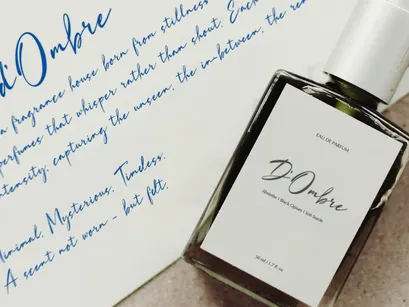 d'Ombre
a fragrance house born from stillness
perfumes that whisper rather than shout. Each
intensity, capturing the unseen, the in-between, the
Minimal. Mysterious. Timeless.
A scent not worn - but felt.
EAU DE PARFUM
D'Ombre
50 ml / 1.7 fl. oz